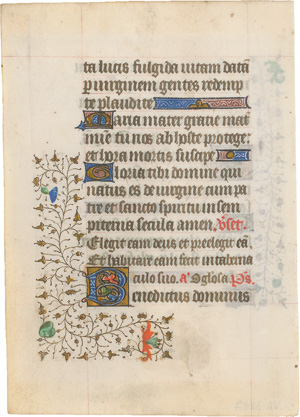 ta lucis fulgida vitam datā
p virginem gentes redemp
te plaudite
Maria mater gratie mat
mīe tu nos ab hoste protege
et hora mortis suscipe
Gloria tibi domine qui
natus es de virgine cum pa
tre et sancto spiritu in sem
piterna secula amen. vˢet
Elegit eam deus et preelegit eā.
Et habitare eam fecit in taberna
culo suo. aᵃ O glosa. pˢ
Benedictus dominus